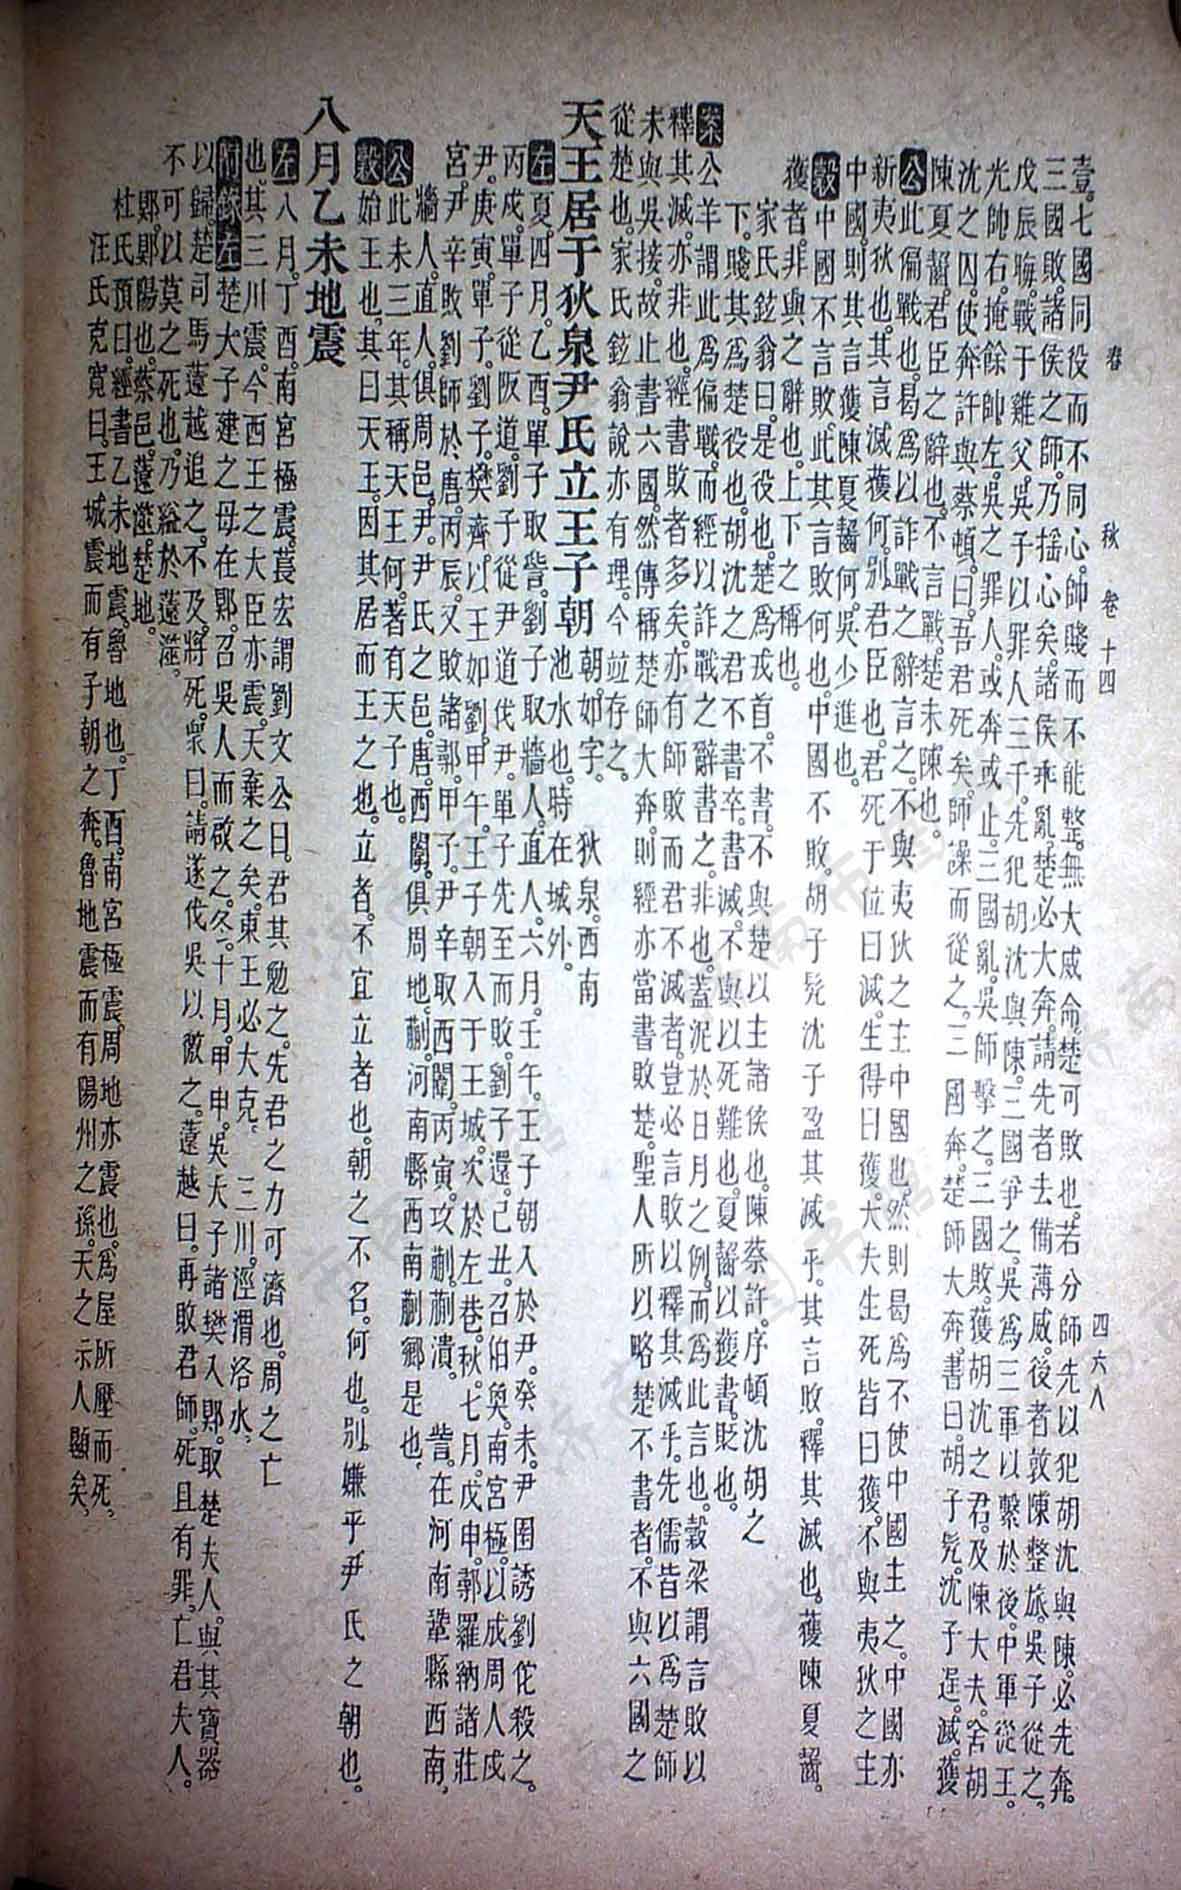 春　秋　卷十四　四六八
壹七國同役而不同心。師賤而不能整。無大威命。楚可敗也。若分師先以犯胡沈與陳。必先奔。
三國敗。諸侯之師。乃搖心矣。諸侯乖亂。楚必大奔。請先者去備薄威。後者敦陳整旅。吳子從之。
戊辰晦。戰于雞父。吳子以罪人三千。先犯胡沈與陳。三國爭之。吳爲三軍以繫於後。中軍從王。
光帥右。掩餘帥左。吳之罪人。或奔或止。三國亂。吳師擊之。三國敗。獲胡沈之君。及陳大夫。舍胡
沈之囚。使奔許與蔡頓。曰。吾君死矣。師譟而從之。三國奔。楚師大奔。書曰。胡子髡。沈子逞。滅。獲
陳夏齧。君臣之辭也。不言戰。楚未陳也。
公此偏戰也。曷爲以詐戰之辭言之。不與夷狄之主中國也。然則曷爲不使中國主之。中國亦
新夷狄也。其言滅獲何。別君臣也。君死于位曰滅。生得曰獲。大夫生死皆曰獲。不與夷狄之主
中國。則其言獲陳夏齧何。吳少進也。
穀中國不言敗。此其言敗何也。中國不敗。胡子髡沈子盈其滅乎。其言敗。釋其滅也。獲陳夏齧。
獲者。非與之辭也。上下之稱也。
家氏鉉翁曰。是役也。楚爲戎首。不書。不與楚以主諸侯也。陳蔡許。序頓沈胡之
下。賤其爲楚役也。胡沈之君不書卒。書滅。不與以死難也。夏齧以獲書。貶也。
案公羊謂此爲偏戰。而經以詐戰之辭書之。非也。蓋泥於日月之例。而爲此言也。穀梁謂言敗以
釋其滅。亦非也。經書敗者多矣。亦有師敗而君不滅者。豈必言敗以釋其滅乎。先儒皆以爲楚師
未與吳接。故止書六國。然傳稱楚師大奔。則經亦當書敗楚。聖人所以略楚不書者。不與六國之
從楚也。家氏鉉翁說亦有理。今竝存之。
天王居于狄泉尹氏立王子朝　朝。如字。　狄泉。西南池水也。時在城外。
左夏。四月。乙酉。單子取訾。劉子取牆人。直人。六月。壬午。王子朝入於尹。癸未。尹圉誘劉佗殺之。
丙戌。單子從阪道。劉子從尹道伐尹。單子先至而敗。劉子還。己丑。召伯奐。南宮極。以成周人戍
尹。庚寅。單子。劉子。樊齊。以王如劉。甲午。王子朝入于王城。次於左巷。秋。七月。戊申。鄩羅納諸莊
宮。尹辛敗劉師於唐。丙辰。又敗諸鄩。甲子。尹辛取西闈。丙寅。攻蒯。蒯潰。　訾。在河南鞏縣西南。
牆人。直人。俱周邑。尹。尹氏之邑。唐。西闈。俱周地。蒯。河南縣西南蒯鄉是也。
公此未三年。其稱天王何。著有天子也。
穀始王也。其曰天王。因其居而王之也。立者。不宜立者也。朝之不名。何也。別嫌乎尹氏之朝也。
八月乙未地震
左八月。丁酉。南宮極震。萇宏謂劉文公曰。君其勉之。先君之力可濟也。周之亡
也。其三川震。今西王之大臣亦震。天棄之矣。東王必大克。　三川。涇渭洛水。
附錄左楚大子建之母在郹。召吳人而啟之。冬。十月。甲申。吳大子諸樊入郹。取楚夫人。與其寶器
以歸。楚司馬薳越追之。不及。將死。衆曰。請遂伐吳以徼之。薳越曰。再敗君師。死且有罪。亡君夫人。
不可以莫之死也。乃縊於薳澨。
郹。郹陽也。蔡邑。薳澨。楚地。
杜氏預曰。經書乙未地震。魯地也。丁酉。南宮極震。周地亦震也。爲屋所壓而死。
汪氏克寬曰。王城震而有子朝之奔。魯地震而有陽州之孫。天之示人顯矣。